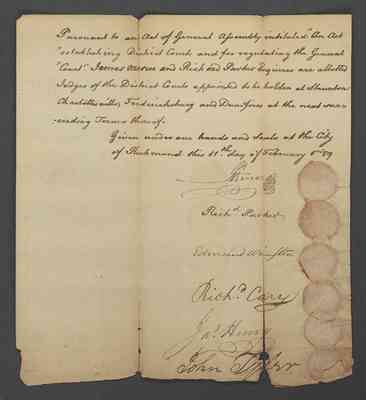 Pursuant to an Act of General Assembly intituled "An Act
"establishing District Courts and for regulating the General
"Court" James Mercer and Richard Parker Esquires are allotted
Judges of the District Courts appointed to be holden at Staunton
Charlottesville, Fredericksburg and Dumfries at the next suc-
-ceeding Terms thereof.
Given under our hands and Seals at the City
of Richmond this 11th day of February 1789
Js Mercer
Richd Parker
Edmund Winston
Richd Cary
Jas Henry
John Tyler